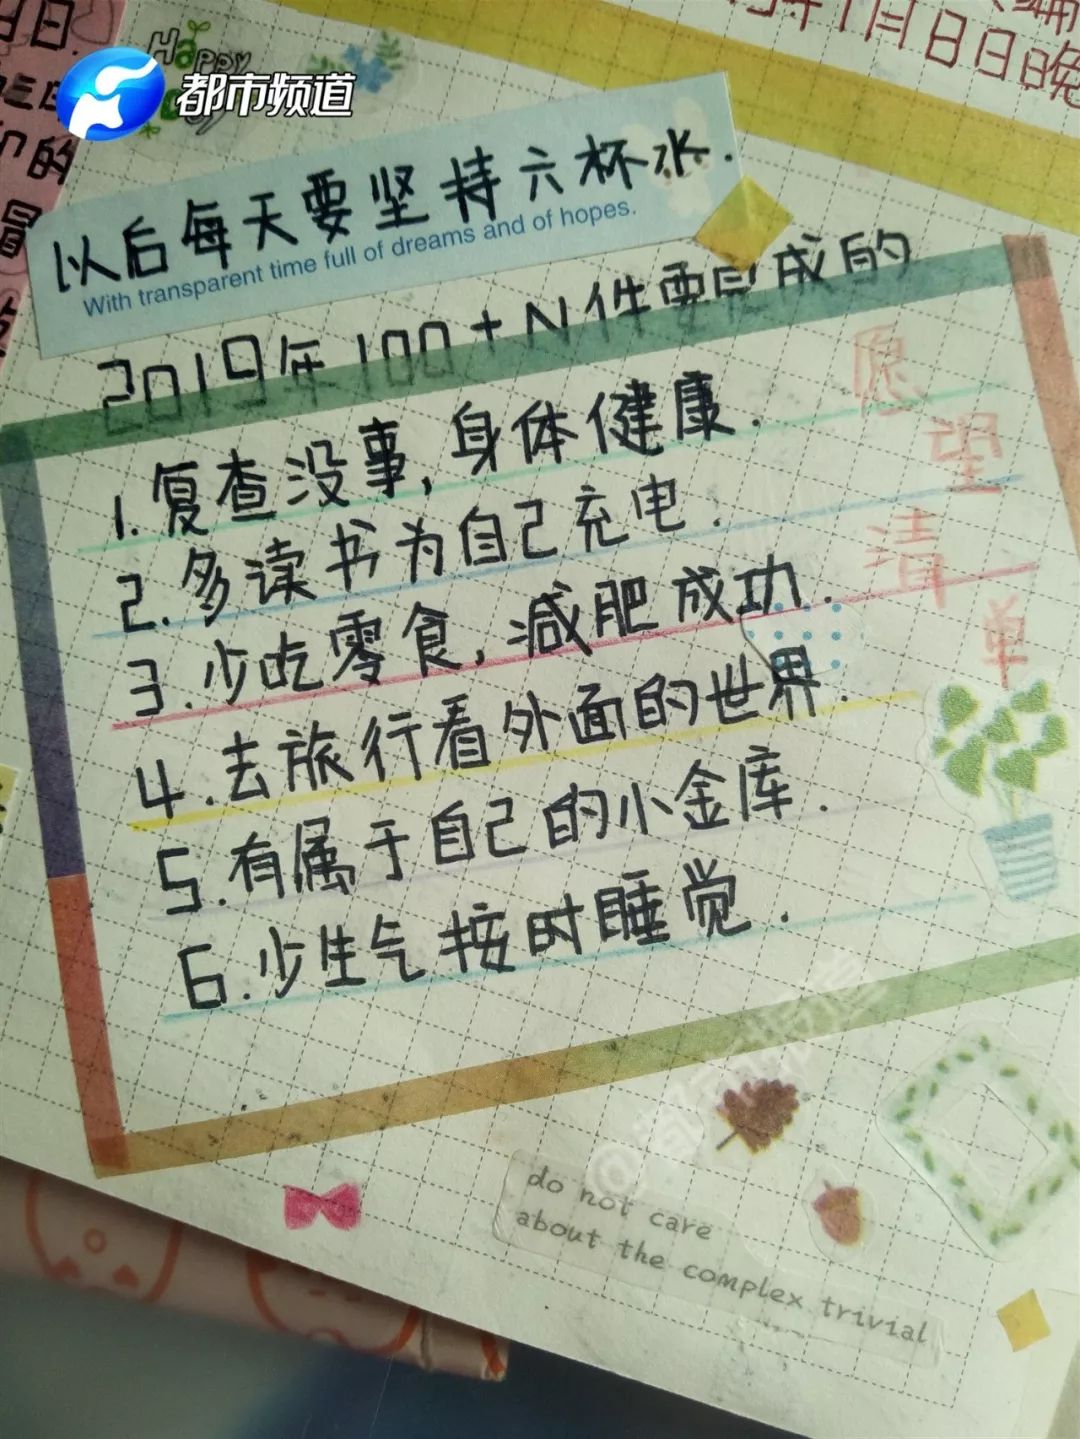 都市频道
Happy
以后每天要坚持六杯水.
With transparent time full of dreams and of hopes.
2019年100+N件要完成的
愿望清单
1.复查没事,身体健康.
2.多读书为自己充电.
3.少吃零食,减肥成功.
4.去旅行看外面的世界.
5.有属于自己的小金库.
6.少生气按时睡觉.
do not care
about the complex trivial